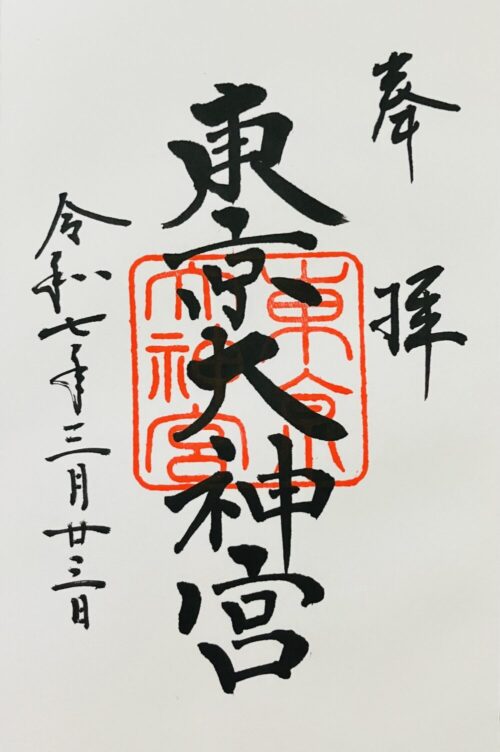 奉拝
東京大神宮
東京大神宮
令和七年三月廿三日